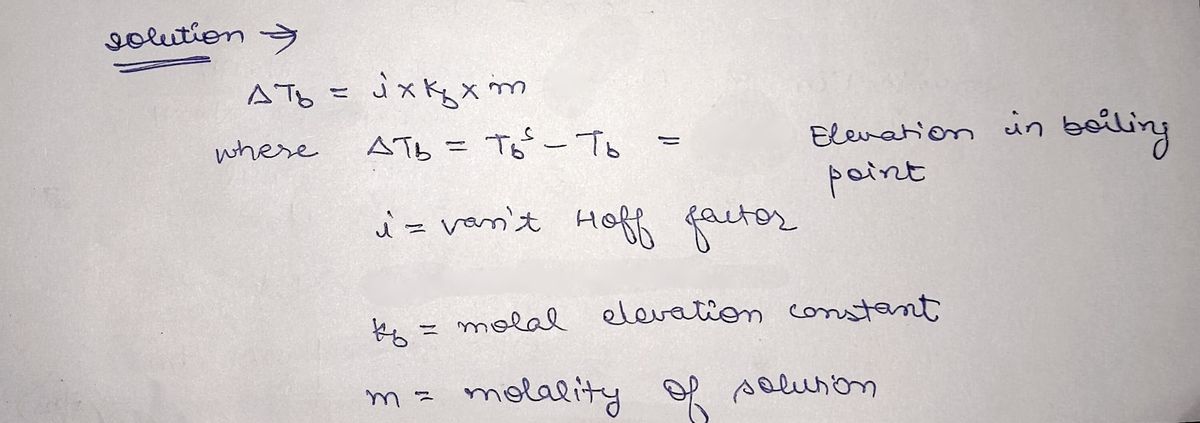 solution →
ΔTb = i x Kb x m
where ΔTb = Tb^s - Tb = Elevation in boiling
point
i = van't Hoff factor
Kb = molal elevation constant
m = molality of solution